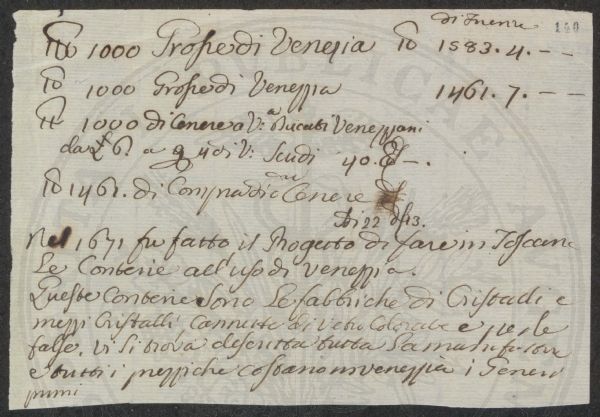 di Firenze 140
lb 1000 Grosse di Venezia lb 1583. 4. - -
lb 1000 Grosse di Venezzia 1461. 7. - -
lb 1000 di Cenere a V.a Ducati Veneziani
da 6. a g 4 di V: Scudi 40.
lb 1461. di Cenere
di 22
Nel 1671 fu fatto il Progetto di fare in Toscana
Le Conterie all'uso di Venezzia.
Queste Conterie sono Le fabbriche di Cristalli e
mezzi Cristalli, Cannette di Vetro Colorate e perle
false. Vi si trova descritta tutta La manifattura
e tutti i prezzi che costano in Venezzia i Generi
primi
PUBLICAE